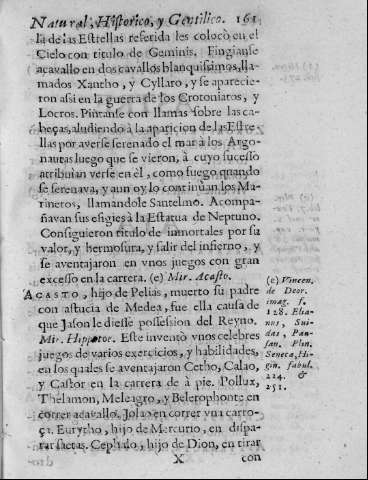 Natural, Historico, y Gentilico. 161
la de las Estrellas referida les colocò en el
Cielo con titulo de Geminis. Fingianse
acavallo en dos cavallos blanquissimos, lla-
mados Xantho, y Cyllaro, y se aparecie-
ron assi en la guerra de los Crotoniatos, y
Locros. Pintanse con llamas sobre las ca-
beças, aludiendo à la aparicion de las Estre-
llas por averse serenado el mar à los Argo-
nautas luego que se vieron, à cuyo sucesso
atribuìan verse en èl, como fuego quando
se serenava, y aun oy lo continùan los Ma-
rineros, llamandole Santelmo. Acompa-
ñavan sus efigies à la Estatua de Neptuno.
Consiguieron titulo de inmortales por su
valor, y hermosura, y salir del infierno, y
se aventajaron en vnos juegos con gran
excesso en la carrera. (e) Mir. Acasto.
ACASTO, hijo de Pelias, muerto su padre
con astucia de Medea, fue ella causa de
que Jason le diesse possession del Reyno.
Mir. Hippotor. Este inventò vnos celebres
juegos de varios exercicios, y habilidades,
en los quales se aventajaron Cetho, Calao,
y Castor en la carrera de à pie. Pollux,
Thelamon, Meleagro, y Belerophonte en
correr acavallo. Jolao en correr vna carro-
ça. Eurytho, hijo de Mercurio, en dispa-
rar saetas. Cephalo, hijo de Dion, en tirar
X con
(e) Vincen.
de Deor.
imag. f.
128. Elia-
nus, Sui-
das, Pau-
san. Plin.
Seneca, Hi-
gin. fabul.
224. &
251.